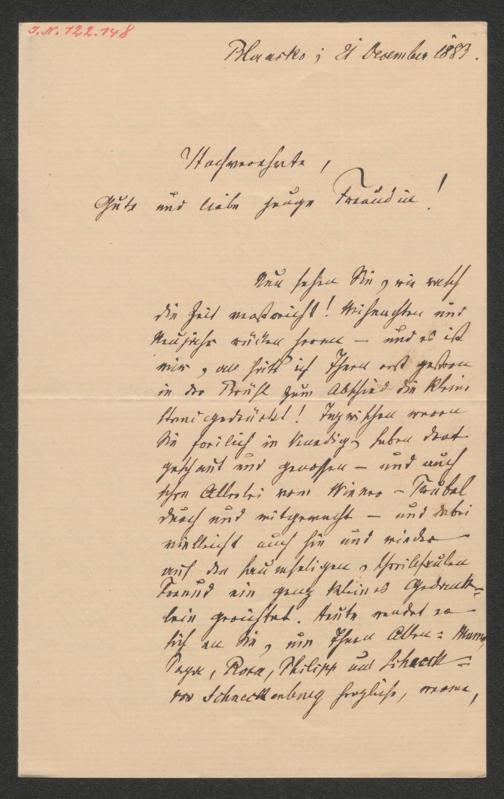 I.N. 122.148
Blansko; 21 Dezember 1883.
Hochverehrte,
Gute und liebe junge Freundin!
Nun sehen Sie, wie rasch
die Zeit verstreicht! Weihnachten und
Neujahr rücken heran — und es ist
mir, als hätt' ich Ihnen erst gestern
in der Früh zum Abschied die kleine
Hand gedrückt! Inzwischen waren
Sie freilich in Venedig, haben dort
geschaut und genossen — und auch
schon Allerlei vom Wiener-Trubel
durch und mitgemacht — und dabei
vielleicht auch hin und wieder
auf den saumseligen, schreibfaulen
Freund ein ganz kleines Gedenk-
lein gerichtet. Heute wendet er
sich an Sie, um Ihnen Allen: Mama,
Papa, Rosa, Philipp und
von herzliche, warme,